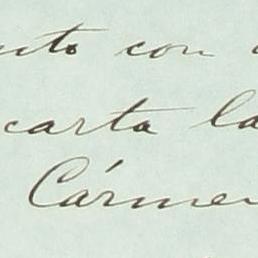 con
carta la
Cármen